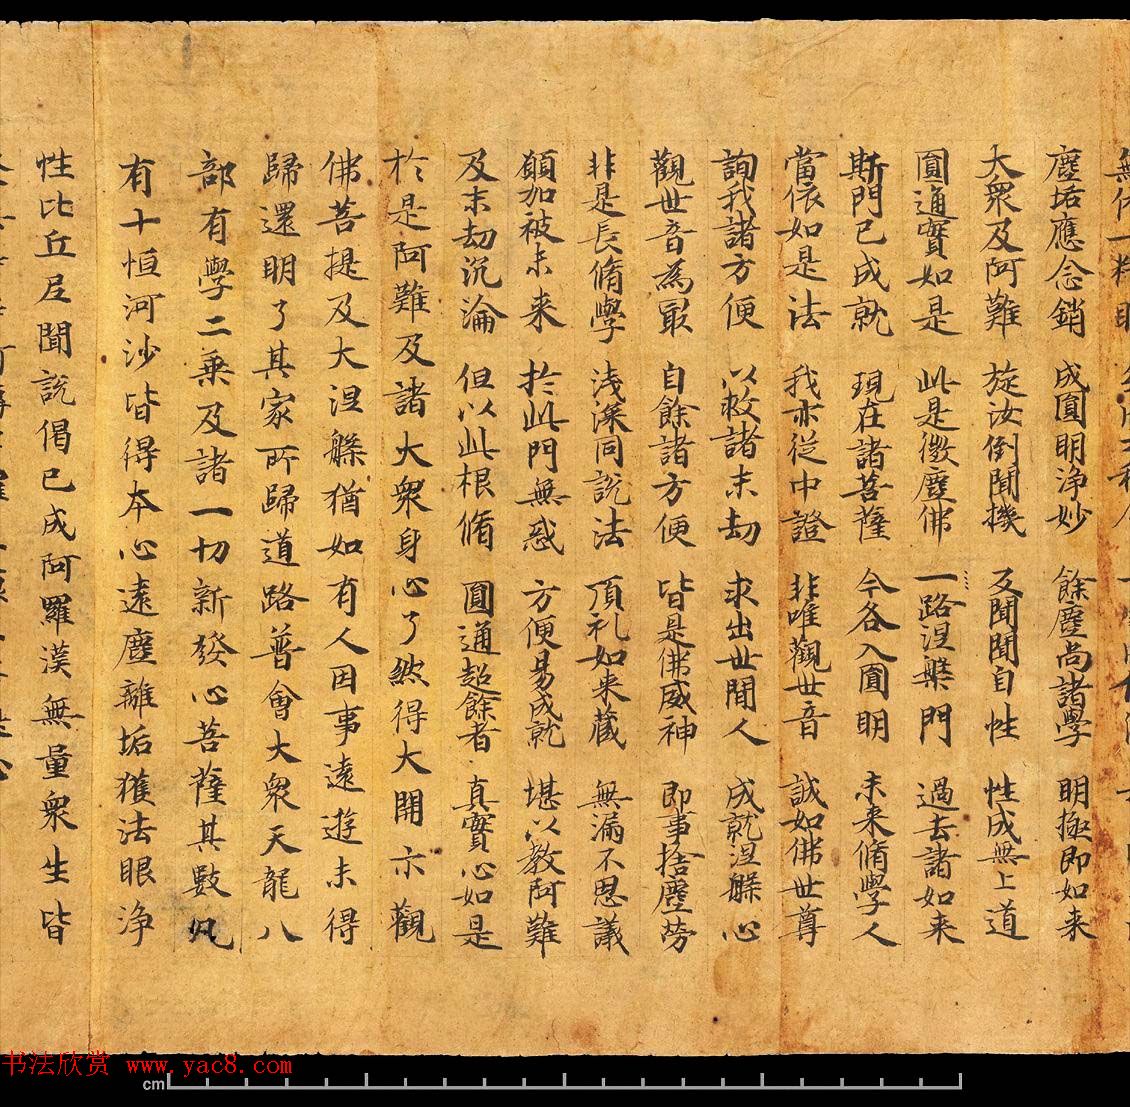 塵垢應念銷 成圓明淨妙 餘塵尚諸學 明極即如来
大衆及阿難 旋汝倒聞機 反聞聞自性 性成無上道
圓通實如是 此是微塵佛 一路涅槃門 過去諸如来
斯門已成就 現在諸菩薩 今各入圓明 未来脩學人
當依如是法 我亦從中證 非唯觀世音 誠如佛世尊
詢我諸方便 以救諸末劫 求出世間人 成就涅槃心
觀世音為最 自餘諸方便 皆是佛威神 即事捨塵勞
非是長脩學 淺深同說法 頂礼如来藏 無漏不思議
願加被未来 於此門無惑 方便易成就 堪以教阿難
及末劫沉淪 但以此根脩 圓通超餘者 真實心如是
於是阿難及諸大衆身心了然得大開示觀
佛菩提及大涅槃猶如有人因事遠遊未得
歸還明了其家所歸道路普會大衆天龍八
部有學二乗及諸一切新發心菩薩其數凡
有十恒河沙皆得本心遠塵離垢獲法眼淨
性比丘尼聞說偈已成阿羅漢無量衆生皆
书法欣赏 www.yac8.com
cm